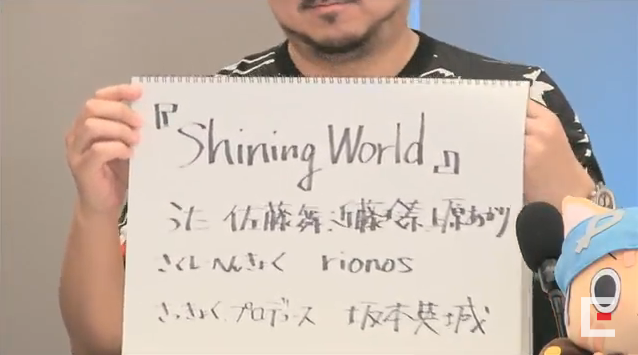 『Shining World』
うた 佐藤舞、近藤 唯、原あかり
さくし・へんきょく rionos
さっきょく、プロデュース 坂本英城